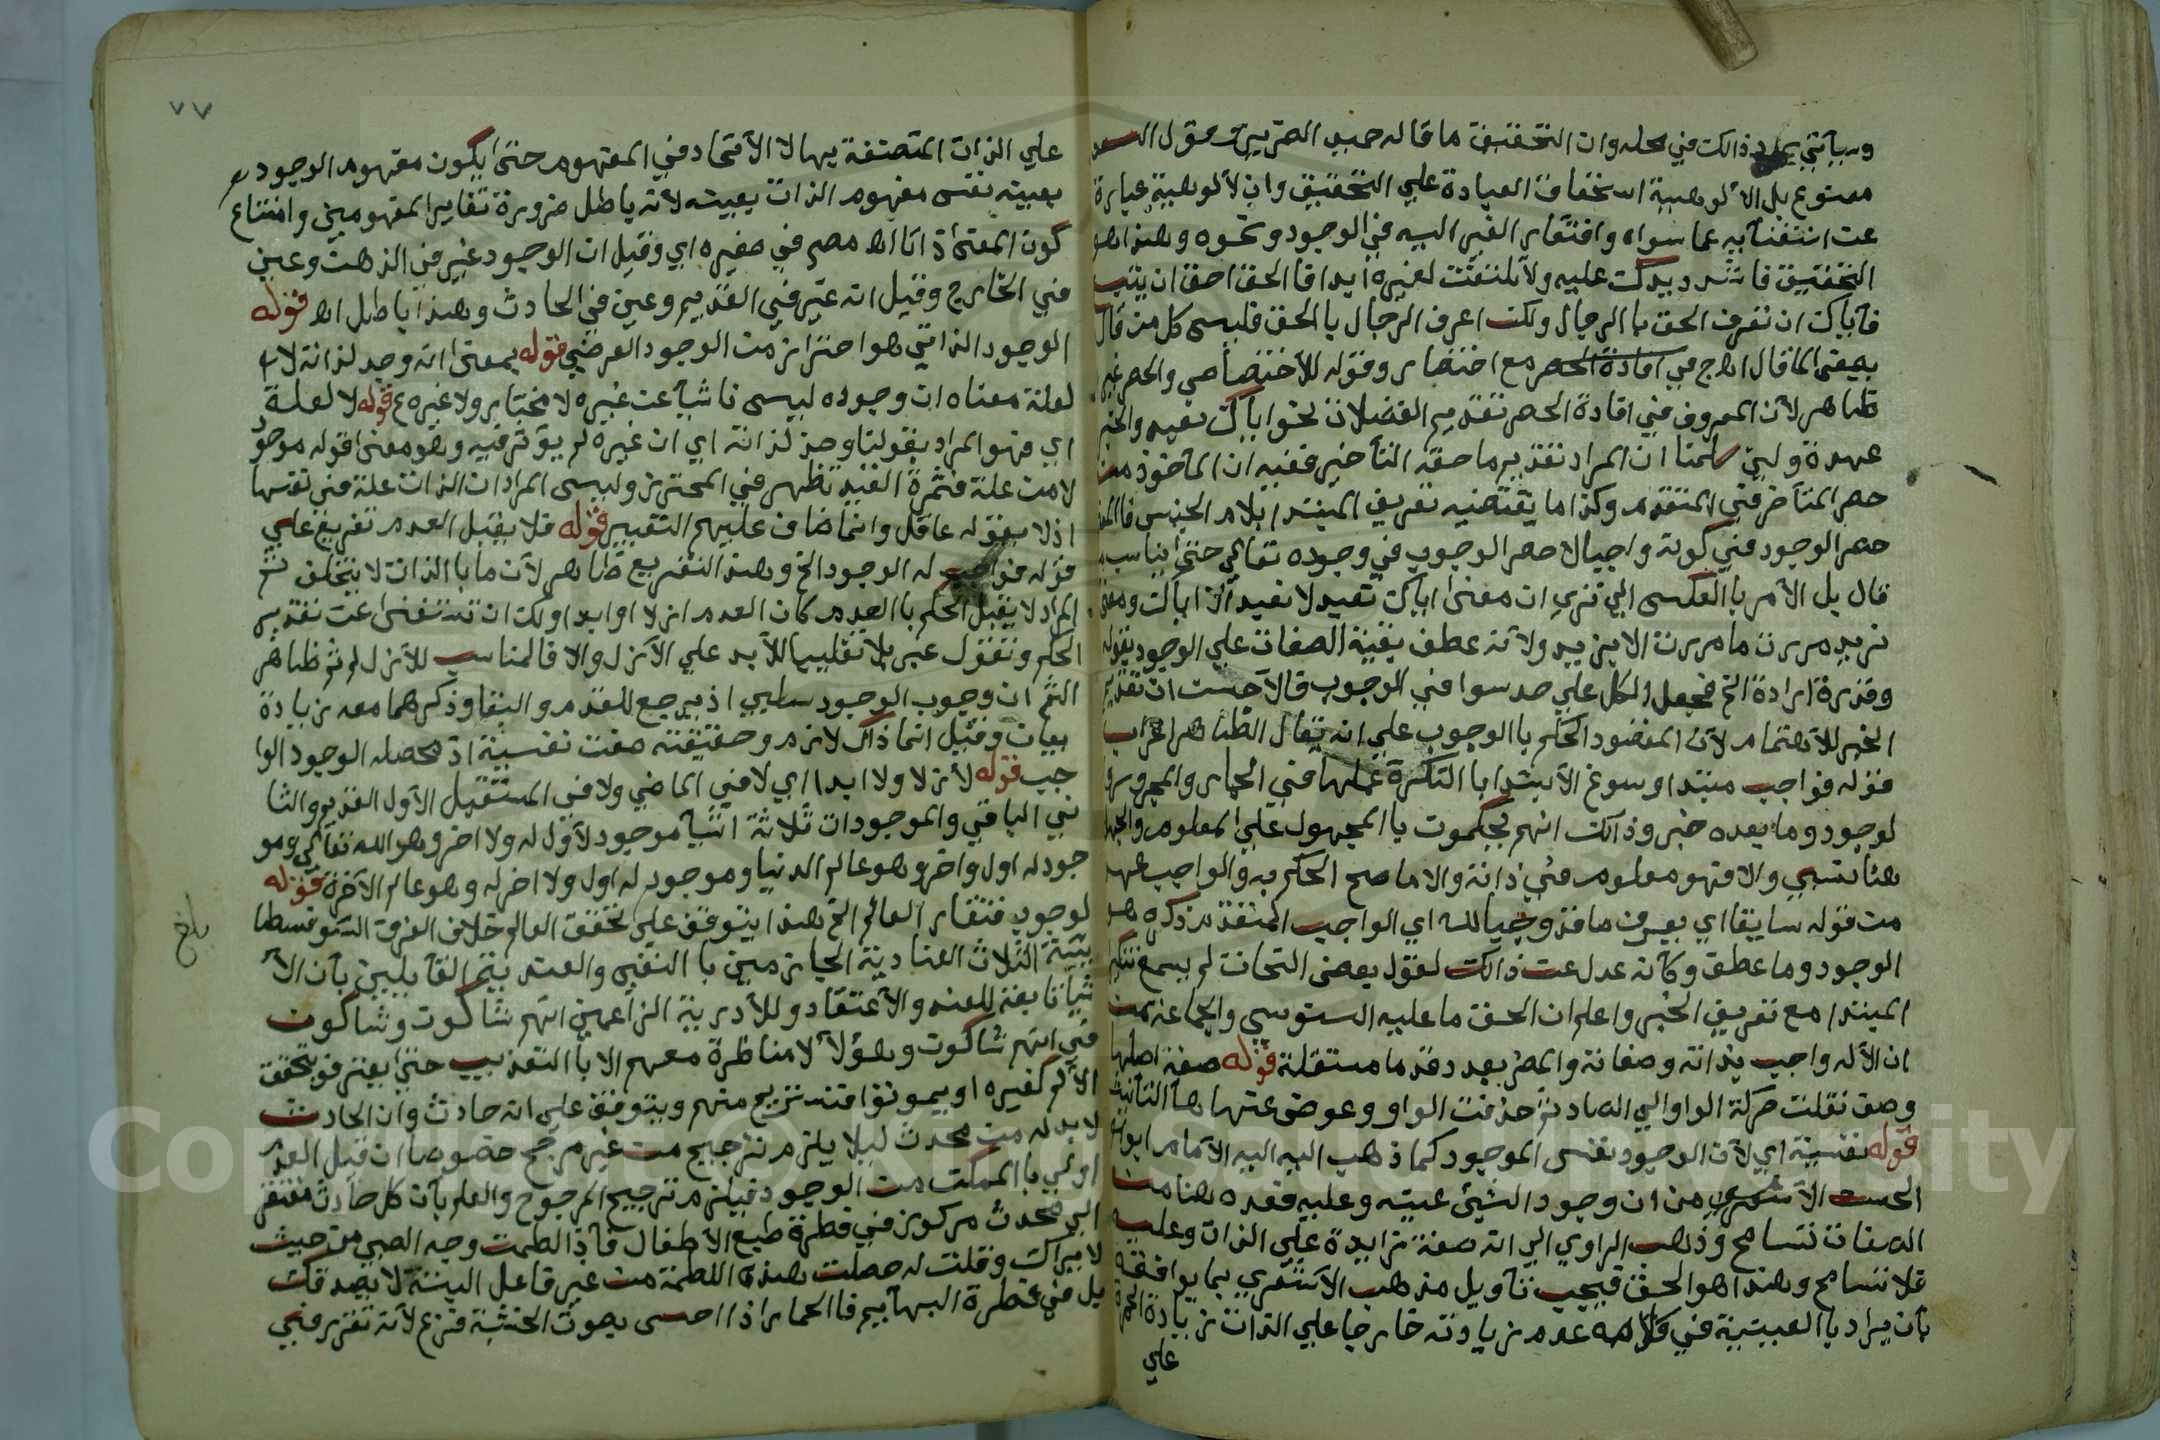 وسيأتي يرد ذالك في محله وان التحقيق ما قاله حميد الضرير وقول السعد
ممنوع بل الألوهية استحقاق العبادة علي التحقيق وان الألوهية عبارة
عن استغنآيه عما سواه وافتقار الغير اليه في الوجود ونحوه وهذا هو
التحقيق فاشدد يدك عليه ولا تلتفت لغيره أبدا فا الحق احق ان يتبع
فأياك ان تعرف الحق با الرجال ولكن اعرف الرجال با الحق فليس كل من قال
بمعني الخ قال اهـ ج في افادة الحصر مع اختصار وقوله للأختصاص والحصر غير
ظاهر لأن المعروف في افادة الحصر تقديم الفضلات نحو اياك نعبد والخبر
عهدة ولين سلمنا ان المراد تقديم ما حقه التأخير ففيه ان المأخوذ منه
حصر المتأخر في المتقدم وكذا ما يقتضيه تعريف المبتدا بلام الجنس فا المعني
حصر الوجود في كونه واجبا لا حصر الوجوب في وجوده تعالي حتي يناسب
قال بل الأمر با العكس الي تري ان معني اياك نعبد لا نعبد الا اياك ومعني
بزيد مررت ما مررت الا بزيد ولأنه عطف بقية الصفات علي الوجود بقوله
وقدرة ارادة الخ فجعل الكل علي حد سوا في الوجوب فالأحسن ان تقديم
الخبر للأهتمام لأن المقصود الحكم با الوجوب علي انه يقال الظاهر اعراب
قوله فواجب مبتدا وسوغ الأبتدا با النكرة عملها في الجار والمجرور
لوجود وما بعده خبر وذالك انهم يحكمون با المجهول علي المعلوم والجهل
هنا نسبي والا فهو معلوم في ذاته والا ما صح الحكم به والواجب عهد
من قوله سابقا اي يعرف ما قد وجبا لله اي الواجب المتقدم ذكره هو
الوجود وما عطف وكأنه عدل عن ذالك لقول بعض النحات لم يسمع تنكير
المبتدا مع تعريف الخبر واعلم ان الحق ما عليه السنوسي والجماعة من
ان الأله واجب بذاته وصفاته والمضر بعد دقد ما مستقلة قوله صفة اصلها
وصف نقلت حركة الواو الي الصاد ثم حذفت الواو وعوض عنها ها التأنيث
قوله نفسية اي لأن الوجود نفس الموجود كما ذهب اليه اليه الأمام ابو
الحسن الأشعري من ان وجود الشئ عينه وعليه فعده هنا من
الصفات تسامح وذهب الرازي الي انه صفة زايدة علي الذات وعليه
فلا تسامح وهذا هو الحق فيجب تأويل مذهب الأشعري بما يوافقه
بأن يراد با العينية في كلامه عدم زيادته خارجا علي الذات زيادة الحمرة
علي
٧٧
علي الذات المتصفة بها لا الأتحاد في المفهوم حتي يكون مفهوم الوجود
بعينه نفس مفهوم الذات بعينه لأنه باطل ضرورة تغاير المفهومين وامتناع
كون المعني ذاتا اهـ مصح في صغيره اي وقيل ان الوجود غير في الذهن وعين
في الخارج وقيل انه غير في القديم وعين في الحادث وهذا باطل اهـ قوله
الوجود الذاتي هو احتراز من الوجود العرضي قوله بمعني انه وجد لذاته لا
لعلة معناه ان وجوده ليس ناشيأ عن غيره لا مختار ولا غيره ع قوله لا لعلة
اي فهو المراد بقولنا وجد لذاته اي ان غيره لم يؤثر فيه وهو معني قوله موجود
لا من علة فثمرة القيد تظهر في المحترز وليس المراد ان الذات علة في نفسها
اذ لا يقوله عاقل وانما ضاق عليهم التعبير قوله فلا يقبل العدم تفريع علي
قوله فواجب له الوجود الخ وهذا التفريع ظاهر لأن ما با الذات لا يتخلف ثم
المراد لا يقبل الحكم با العدم كان العدم ازلا او ابدا ولك ان تستغني عن تقدير
الحكم ونقول عبر بلا تغليبا للأبد علي الأزل والا فالمناسب للأزل لم ثم ظاهر
الثم ان وجوب الوجود سلبي اذ يرجع للقدم والبقا وذكرهما معه زيادة
بيان وقيل انما ذاك لازم وحقيقته صفت نفسية اذ محصله الوجود الوا
جب قوله لأزلا ولا ابدا اي لا في الماضي ولا في المستقبل الأول القديم والثا
ني الباقي والموجودات ثلاثة اشيا موجود لأول له ولا اخر وهو الله تعالي ومو
جود له اول واخر وهو عالم الدنيا وموجود له اول ولا اخر له وهو عالم الأخرة قوله
لوجوب فتقار العالم الخ هذا يتوقف علي تحقق العالم خلاف الفرق السوفسطا
بيّة الثلاث العنادية الجازمين با النفي والعندية القآيلين بأن الأ
شيا تابعة للعند والأعتقاد وللأدرية الزاعمين انهم شاكون وشاكون
في انهم شاكون وهؤلا لا مناظرة معهم الا با التعذيب حتي يعترفو بتحقق
الألم كغيره او يموتوا فتستريح منهم ويتوقف علي انه حادث وان الحادث
لا بد له من محدث ليلا يلزم ترجيح من غير مرجح خصوصا ان قيل العدم
اولي با الممكن من الوجود فيلزم ترجيح المرجوح والعلم بأن كل حادث مفتقر
الي محدث مركوز في فطرة طبع الأطفال فأذا لطمت وجه الصبي من حيث
لا يراك وقلت له حصلت هذه اللطمة من غير فاعل البتة لا يصدقك
بل في فطرة البهآيم فا الحمار اذا احس بصوت الخشبة فزع لأنه تقرر في
بلغ
Copyright © King Saud University